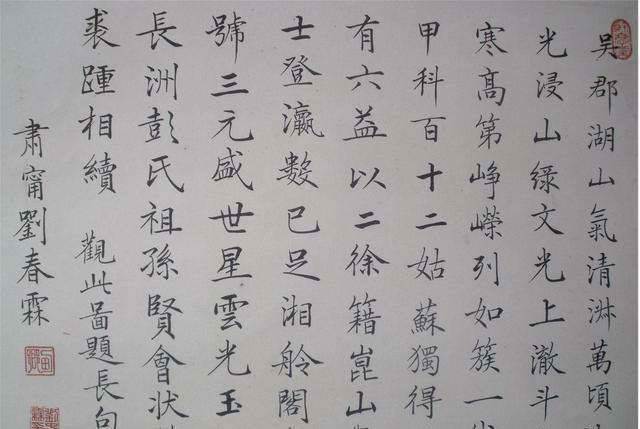 吳郡湖山氣清淑萬頃
光浸山綠文光上澈斗
寒高第崢嶸列如簇一
甲科百十二姑蘇獨得
有六益以二徐籍崑山
士登瀛數已足湘舲閣
號三元盛世星雲光玉
長洲彭氏祖孫賢會狀
裘踵相續 觀此啚題長句
肅甯劉春霖